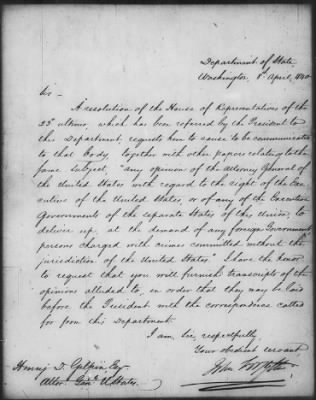 Department of State
Washington, 1st April, 1840
Sir —
A resolution of the House of Representatives of the
23d ultimo, which has been referred by the President to
this Department, requests him to cause to be communicated
to that body, together with other papers relating to the
same subject, "any opinion of the Attorney General of
the United States with regard to the right of the Exe
cutive of the United States, or of any of the Executive
Governments of the separate States of this Union, to
deliver up, at the demand of any foreign Government,
persons charged with crimes committed without the
jurisdiction of the United States." I have the honor
to request that you will furnish transcripts of the
opinions alluded to, in order that they may be laid
before the President with the correspondence called
for from this Department.
I am, Sir, respectfully,
Your obedient servant,
John Forsyth
Henry D. Gilpin, Esq
Attor. Genl. U. States.